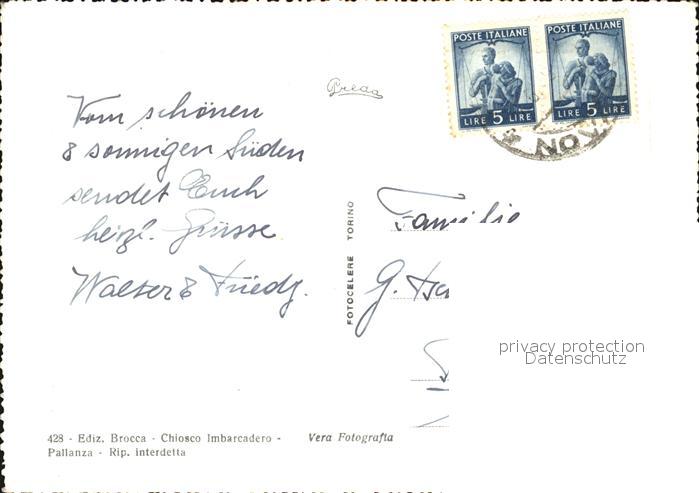 Breda
POSTE ITALIANE POSTE ITALIANE
LIRE 5 LIRE LIRE 5 LIRE
NOV
Vom schönen
& sonnigen Süden
sendet Euch
herzl. Grüsse
Walter & Friedg.
FOTOCELERE TORINO
Familie
G.
privacy protection
Datenschutz
428 - Ediz. Brocca - Chiosco Imbarcadero -
Pallanza - Rip. interdetta
Vera Fotografia